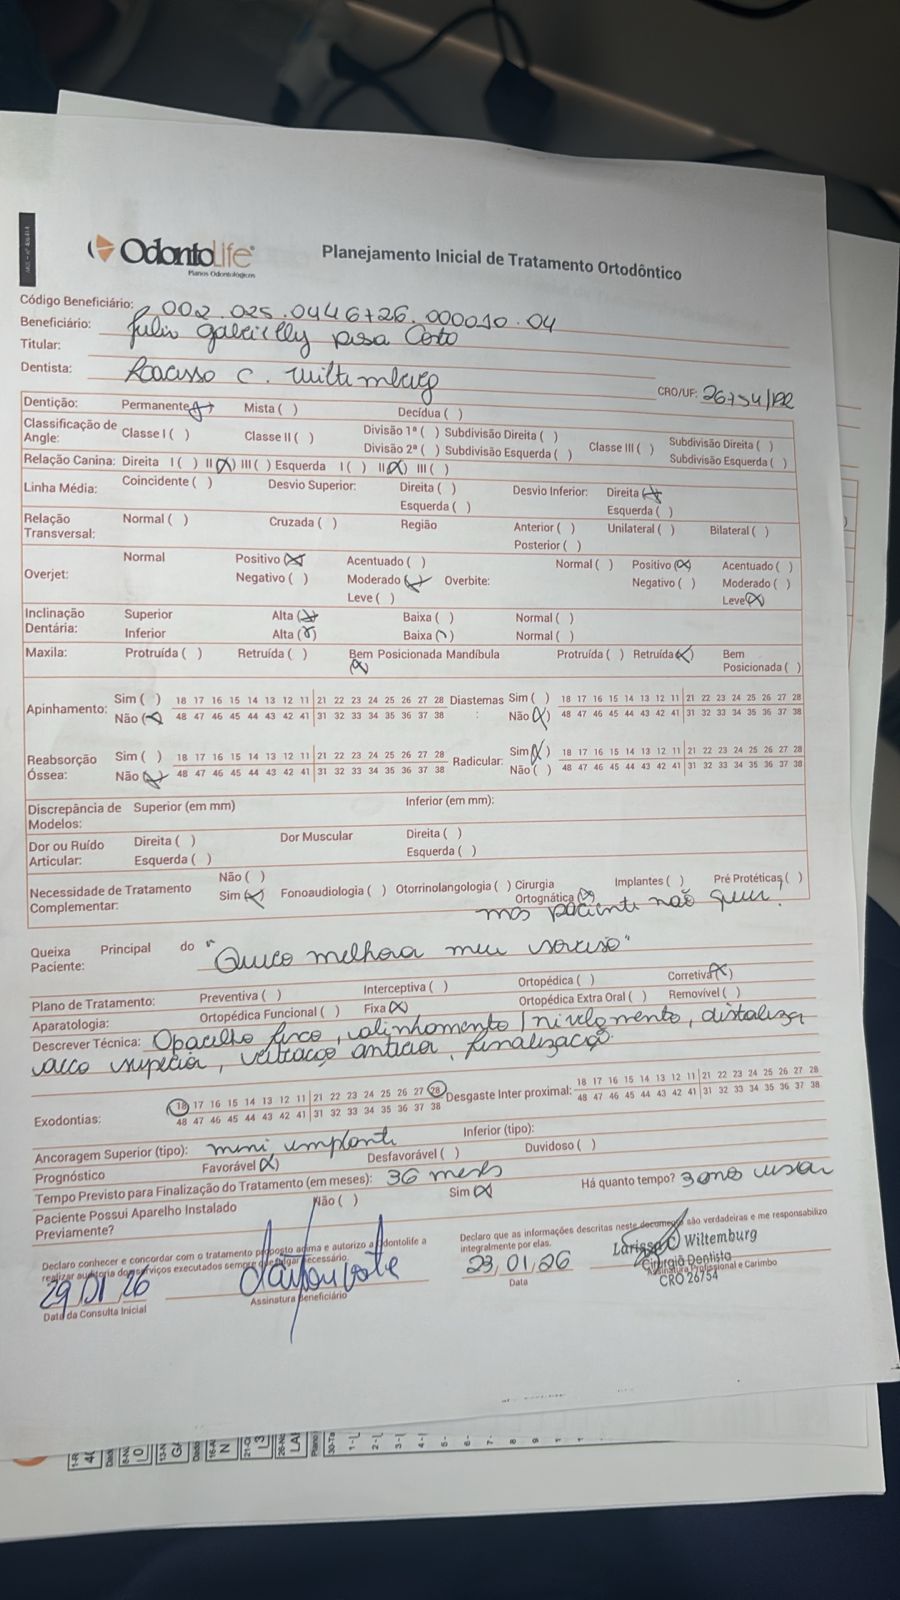 OdontoLife
Planos Odontológicos
Planejamento Inicial de Tratamento Ortodôntico
Código Beneficiário: 002.025.0446726.000010.04
Beneficiário: gabrielly
Titular:
Dentista: C. Wiltemburg CRO/UF: 26754/PR
Dentição: Permanente (x) Mista ( ) Decídua ( )
Classificação de Angle: Classe I ( ) Classe II ( ) Divisão 1ª ( ) Subdivisão Direita ( ) Classe III ( ) Subdivisão Direita ( )
Divisão 2ª ( ) Subdivisão Esquerda ( ) Subdivisão Esquerda ( )
Relação Canina: Direita I ( ) II (x) III ( ) Esquerda I ( ) II (x) III ( )
Linha Média: Coincidente ( ) Desvio Superior: Direita ( ) Desvio Inferior: Direita (x)
Esquerda ( ) Esquerda ( )
Relação Transversal: Normal ( ) Cruzada ( ) Região Anterior ( ) Unilateral ( ) Bilateral ( )
Posterior ( )
Overjet: Normal Positivo (x) Acentuado ( ) Overbite: Normal ( ) Positivo (x) Acentuado ( )
Negativo ( ) Moderado (x) Negativo ( ) Moderado ( )
Leve ( ) Leve (x)
Inclinação Dentária: Superior Alta (x) Baixa ( ) Normal ( )
Inferior Alta (x) Baixa ( ) Normal ( )
Maxila: Protruída ( ) Retruída ( ) Bem Posicionada (x) Mandíbula Protruída ( ) Retruída (x) Bem Posicionada ( )
Apinhamento: Sim ( ) 18 17 16 15 14 13 12 11 21 22 23 24 25 26 27 28 Diastemas: Sim ( ) 18 17 16 15 14 13 12 11 21 22 23 24 25 26 27 28
Não (x) 48 47 46 45 44 43 42 41 31 32 33 34 35 36 37 38 Não (x) 48 47 46 45 44 43 42 41 31 32 33 34 35 36 37 38
Reabsorção Óssea: Sim ( ) 18 17 16 15 14 13 12 11 21 22 23 24 25 26 27 28 Radicular: Sim (x) 18 17 16 15 14 13 12 11 21 22 23 24 25 26 27 28
Não (x) 48 47 46 45 44 43 42 41 31 32 33 34 35 36 37 38 Não ( ) 48 47 46 45 44 43 42 41 31 32 33 34 35 36 37 38
Discrepância de Modelos: Superior (em mm) Inferior (em mm):
Dor ou Ruído Articular: Direita ( ) Dor Muscular Direita ( )
Esquerda ( ) Esquerda ( )
Necessidade de Tratamento Complementar: Não ( )
Sim (x) Fonoaudiologia ( ) Otorrinolangologia ( ) Cirurgia Ortognática (x) Implantes ( ) Pré Protéticas ( )
mas paciente não quer.
Queixa Principal do Paciente: "Quero melhora meu sorriso"
Plano de Tratamento: Preventiva ( ) Interceptiva ( ) Ortopédica ( ) Corretiva (x)
Aparatologia: Ortopédica Funcional ( ) Fixa (x) Ortopédica Extra Oral ( ) Removível ( )
Descrever Técnica: fixo, alinhamento/nivelamento, distaliza
arco superior, retração anterior, finalização.
Exodontias: 18 17 16 15 14 13 12 11 21 22 23 24 25 26 27 28 Desgaste Inter proximal: 18 17 16 15 14 13 12 11 21 22 23 24 25 26 27 28
48 47 46 45 44 43 42 41 31 32 33 34 35 36 37 38 48 47 46 45 44 43 42 41 31 32 33 34 35 36 37 38
Ancoragem Superior (tipo): mini implante Inferior (tipo):
Prognóstico Favorável (x) Desfavorável ( ) Duvidoso ( )
Tempo Previsto para Finalização do Tratamento (em meses): 36 meses
Paciente Possui Aparelho Instalado Previamente? Não ( ) Sim (x) Há quanto tempo? 3 anos
Declaro conhecer e concordar com o tratamento proposto acima e autorizo a Odontolife a
realizar auditoria dos serviços executados sempre que julgar necessário.
Declaro que as informações descritas neste documento são verdadeiras e me responsabilizo
integralmente por elas.
29/01/26
Data da Consulta Inicial
Assinatura Beneficiário
23/01/26
Data
Larissa C Wiltemburg
Cirurgiã Dentista
CRO 26754
Assinatura Profissional e Carimbo